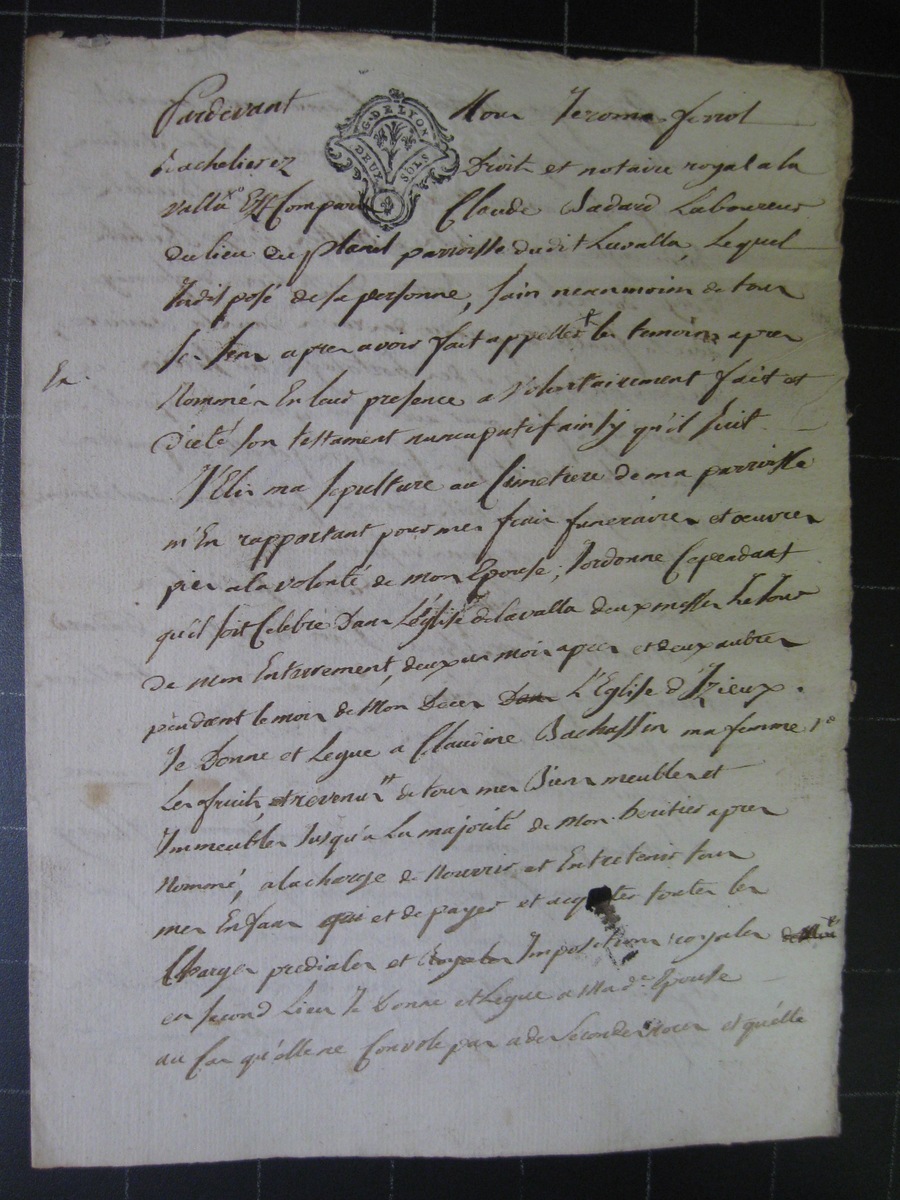 Pardevant Nous Jerome ferriol
G. DE LYON
DEUX SOLS
Bachelier ez Droit et notaire royal a la
valla Est Comparu Claude Badard Laboureur
du lieu du planil parroisse dudit Lavalla, Lequel
Indisposé de sa personne, sain neanmoins de tous
se sens apres avoir fait appeller les temoins apres
En
Nommés En leur presence a volontairement fait et
dicté son testament nuncupatif ainsy qu'il suit
J'Elis ma sepulture au Cimetiere de ma parroisse
m'En rapportant pour mes frais funeraires et oeuvres
pies a la volonté de mon Epouse, J'ordonne Cependant
qu'il soit Celebré Dans L'église de lavalla deux messes Le Jour
de mon Enterrement, deux un mois apres et deux autres
pendant le mois de Mon Deces Dans L'Eglise d'Izieux.
Je Donne et Legue a Claudine Bachassin ma femme 1°
Les fruits et revenus de tous mes Biens meubles et
Immeubles Jusqu'a La majorité de Mon heritier apres
Nommé, a la charge de Nourrir et Entretenir tous
mes Enfans qui et de payer et acquiter toutes les
Charges prediales et Royales Impositions royales
en second Lieu Je Donne et Legue a Mad.e Epouse
au Cas qu'elle ne Convole pas a de Secondes noces et qu'elle